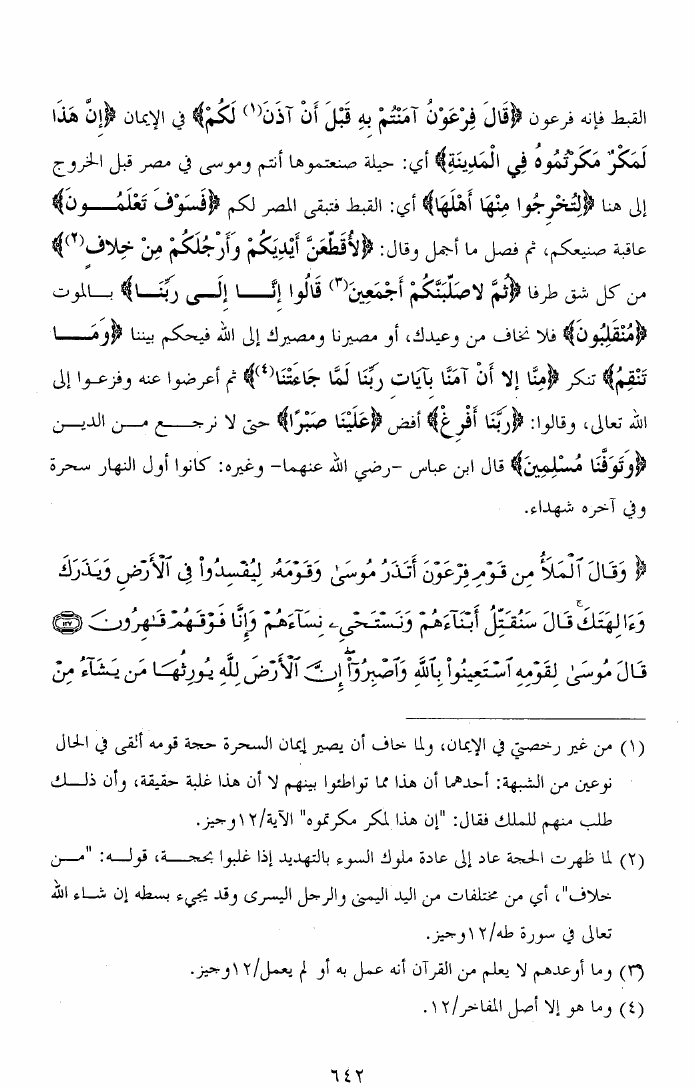 القبط فإنه فرعون ﴿قَالَ فِرْعَوْنُ آمَنْتُمْ بِهِ قَبْلَ أَنْ آذَنَ(١) لَكُمْ﴾ في الإيمان ﴿إِنَّ هَذَا
لَمَكْرٌ مَكَرْتُمُوهُ فِي الْمَدِينَةِ﴾ أي: حيلة صنعتموها أنتم وموسى في مصر قبل الخروج
إلى هنا ﴿لِتُخْرِجُوا مِنْهَا أَهْلَهَا﴾ أي: القبط فتبقى المصر لكم ﴿فَسَوْفَ تَعْلَمُــونَ﴾
عاقبة صنيعكم، ثم فصل ما أجمل وقال: ﴿لأُقَطِّعَنَّ أَيْدِيَكُمْ وَأَرْجُلَكُمْ مِنْ خِلافٍ(٢)﴾
من كل شق طرفا ﴿ثُمَّ لاصَلِّبَنَّكُمْ أَجْمَعِينَ(٣) قَالُوا إِنَّــا إِلَــى رَبِّنَــا﴾ بــالموت
﴿مُنْقَلِبُونَ﴾ فلا نخاف من وعيدك، أو مصيرنا ومصيرك إلى الله فيحكم بيننا ﴿وَمَــا
تَنْقِمُ﴾ تنكر ﴿مِنَّا إِلا أَنْ آمَنَّا بِآيَاتِ رَبِّنَا لَمَّا جَاءَتْنَا(٤)﴾ ثم أعرضوا عنه وفزعـوا إلى
الله تعالى، وقالوا: ﴿رَبَّنَا أَفْرِغْ﴾ أفض ﴿عَلَيْنَا صَبْرًا﴾ حتى لا نرجــع مــن الديــن
﴿وَتَوَفَّنَا مُسْلِمِينَ﴾ قال ابن عباس -رضي الله عنهما- وغيره: كانوا أول النهار سحرة
وفي آخره شهداء.
﴿ وَقَالَ ٱلْمَلَأُ مِن قَوْمِ فِرْعَوْنَ أَتَذَرُ مُوسَىٰ وَقَوْمَهُۥ لِيُفْسِدُوا۟ فِى ٱلْأَرْضِ وَيَذَرَكَ
وَءَالِهَتَكَ ۚ قَالَ سَنُقَتِّلُ أَبْنَآءَهُمْ وَنَسْتَحْىِۦ نِسَآءَهُمْ وَإِنَّا فَوْقَهُمْ قَـٰهِرُونَ ١٢٧
قَالَ مُوسَىٰ لِقَوْمِهِ ٱسْتَعِينُوا۟ بِٱللَّهِ وَٱصْبِرُوٓا۟ ۖ إِنَّ ٱلْأَرْضَ لِلَّهِ يُورِثُهَا مَن يَشَآءُ مِنْ
(١) من غير رخصتي في الإيمان، ولما خاف أن يصير إيمان السحرة حجة قومه ألقى في الحال
نوعين من الشبهة: أحدهما أن هذا مما تواطئوا بينهم لا أن هذا غلبة حقيقة، وأن ذلــك
طلب منهم للملك فقال: "إن هذا لمكر مكرتموه" الآية/١٢وجيز.
(٢) لما ظهرت الحجة عاد إلى عادة ملوك السوء بالتهديد إذا غلبوا بحجــة، قولــه: "مــن
خلاف"، أي من مختلفات من اليد اليمنى والرجل اليسرى وقد يجيء بسطه إن شــاء الله
تعالى في سورة طه/١٢وجيز.
(٣) وما أوعدهم لا يعلم من القرآن أنه عمل به أو لم يعمل/١٢وجيز.
(٤) وما هو إلا أصل المفاخر/١٢.
٦٤٢